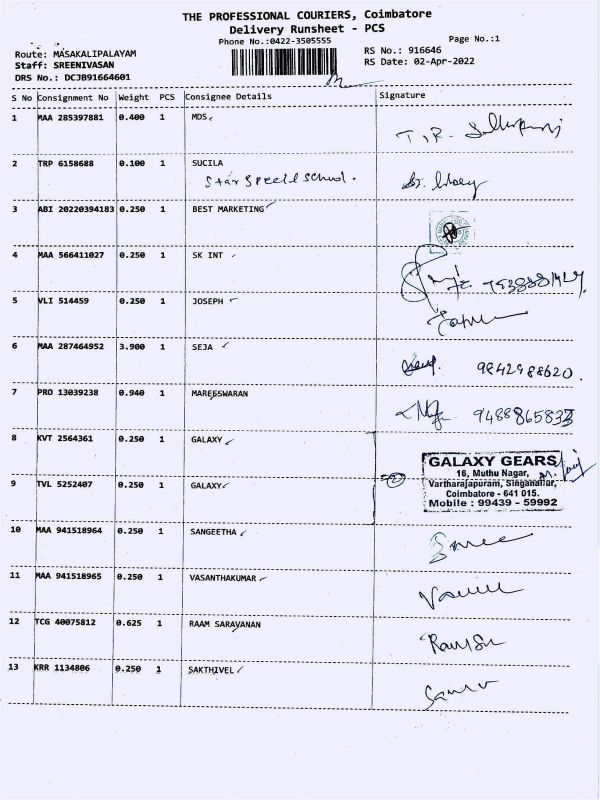 THE PROFESSIONAL COURIERS, Coimbatore
Delivery Runsheet - PCS
Phone No.:0422-3505555
Page No.:1
Route: MASAKALIPALAYAM
Staff: SREENIVASAN
DRS No.: DCJB91664601
RS No.: 916646
RS Date: 02-Apr-2022
S No Consignment No Weight PCS Consignee Details Signature
1 MAA 285397881 0.400 1 MDS
2 TRP 6158688 0.100 1 SUCILA
Star Speciel School.
3 ABI 20220394183 0.250 1 BEST MARKETING
4 MAA 566411027 0.250 1 SK INT
5 VLI 514459 0.250 1 JOSEPH
6 MAA 287464952 3.900 1 SEJA 9842988620.
7 PRO 13039238 0.940 1 MAREESWARAN 9488865833
8 KVT 2564361 0.250 1 GALAXY
GALAXY GEARS
16, Muthu Nagar,
Vartharajapuram, Singanallur,
Coimbatore - 641 015.
Mobile : 99439 - 59992
9 TVL 5252407 0.250 1 GALAXY
10 MAA 941518964 0.250 1 SANGEETHA
11 MAA 941518965 0.250 1 VASANTHAKUMAR
12 TCG 40075812 0.625 1 RAAM SARAVANAN
13 KRR 1134806 0.250 1 SAKTHIVEL